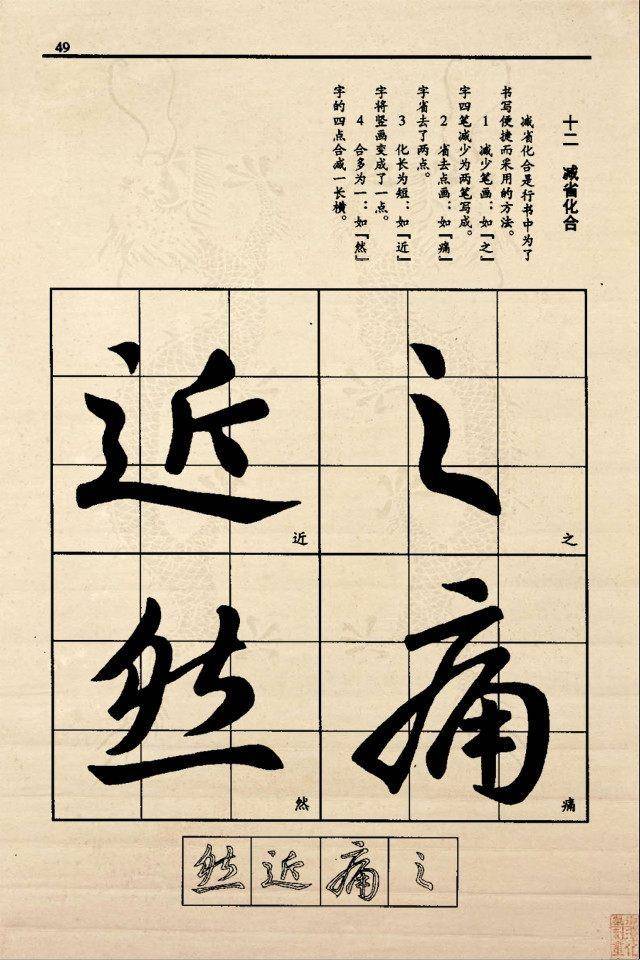 49
十二 减省化合
减省化合是行书中为了
书写便捷而采用的方法。
1 减少笔画：如『之』
字四笔减少为两笔写成。
2 省去点画：如『痛』
字省去了两点。
3 化长为短：如『近』
字将竖画变成了一点。
4 合多为一：如『然』
字的四点合减一长横。
之
之
痛
痛
近
近
然
然
之
痛
近
然